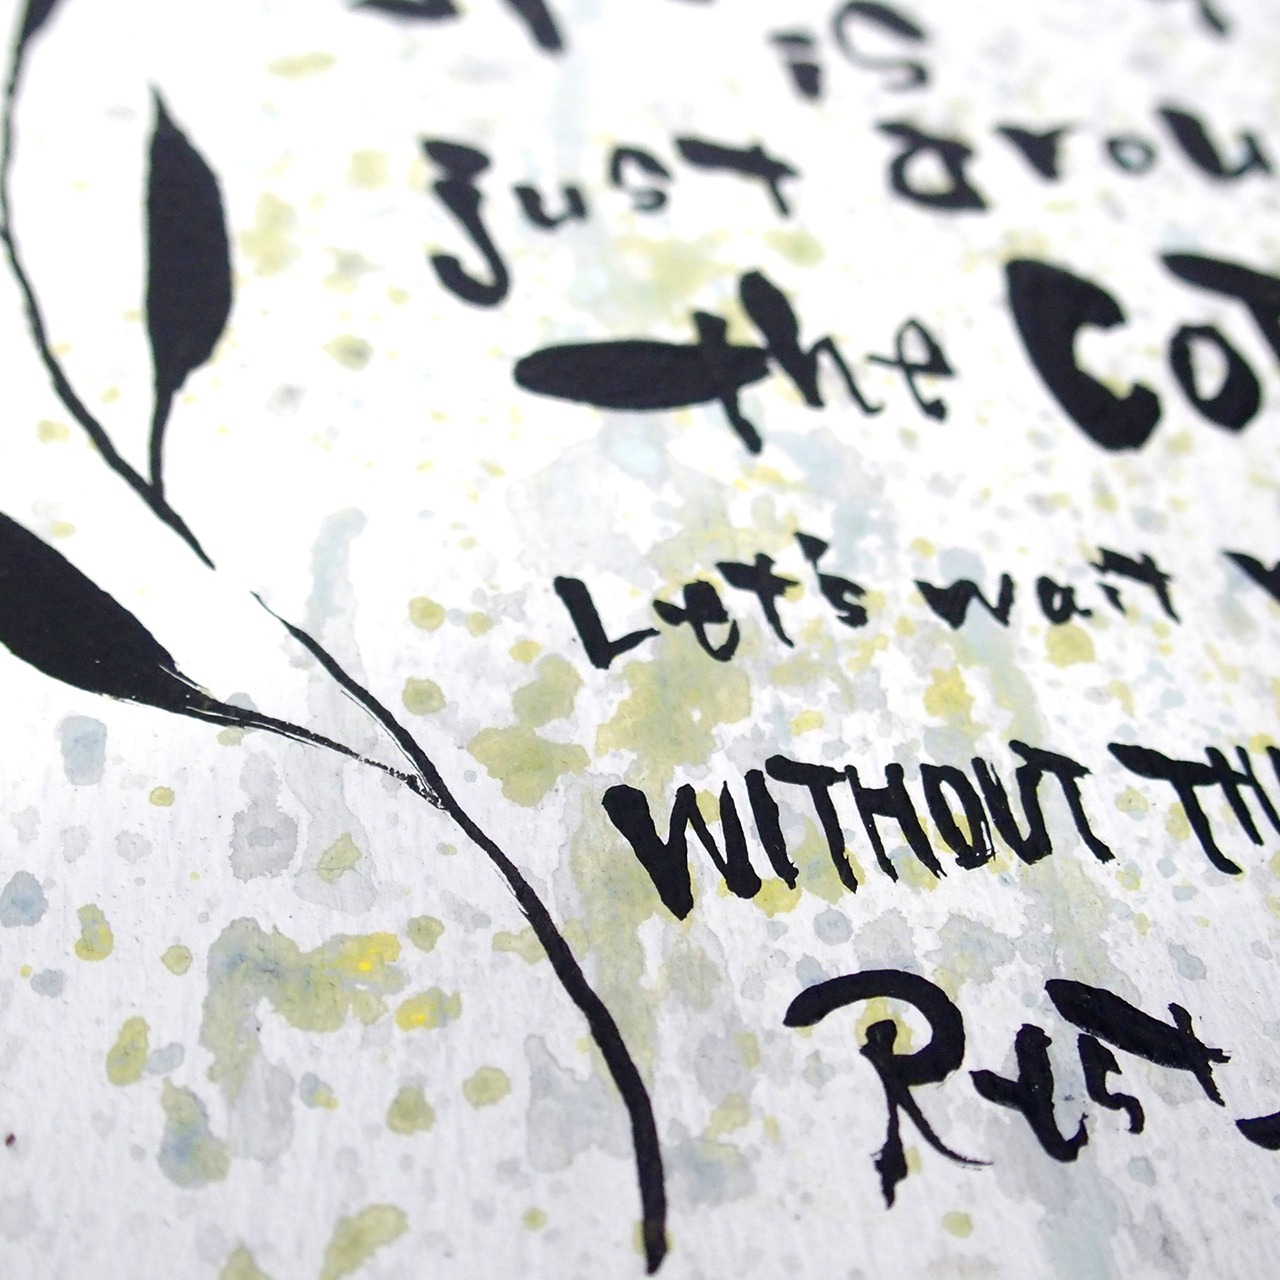 is
just arou
the Co
Let's wait
WITHOUT TH
Rest